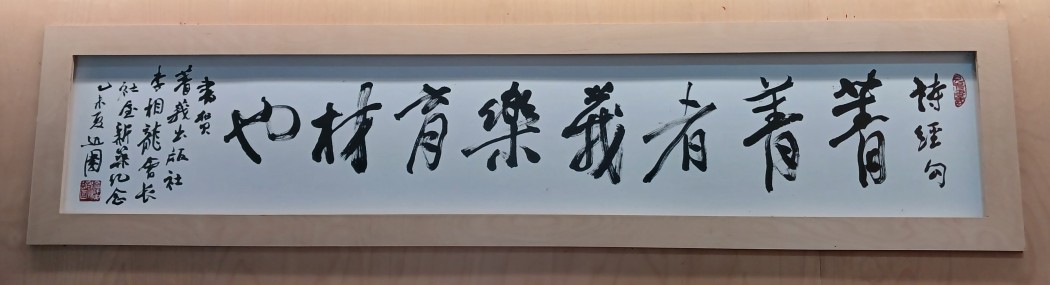 詩經句
菁菁者莪樂育材也
書賀
菁莪出版社
李相龍會長
社屋新築紀念
乙未夏 近園